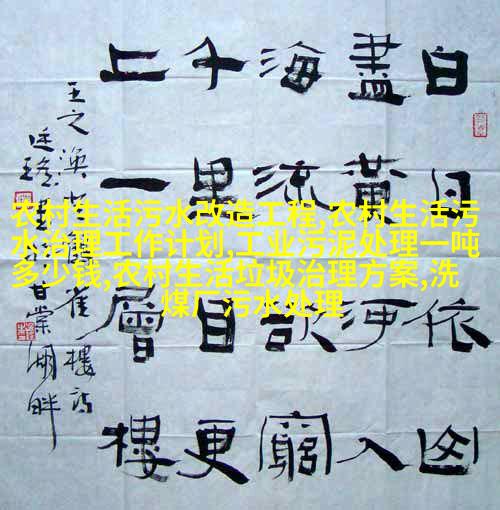 白日依山
盡黃河入
海流欲窮
千里目更
上一層樓
王之渙 雀樓詩
甘棠湖畔
农村生活污水改造工程,农村生活污
水治理工作计划,工业污泥处理一吨
多少钱,农村生活垃圾治理方案,洗
煤厂污水处理